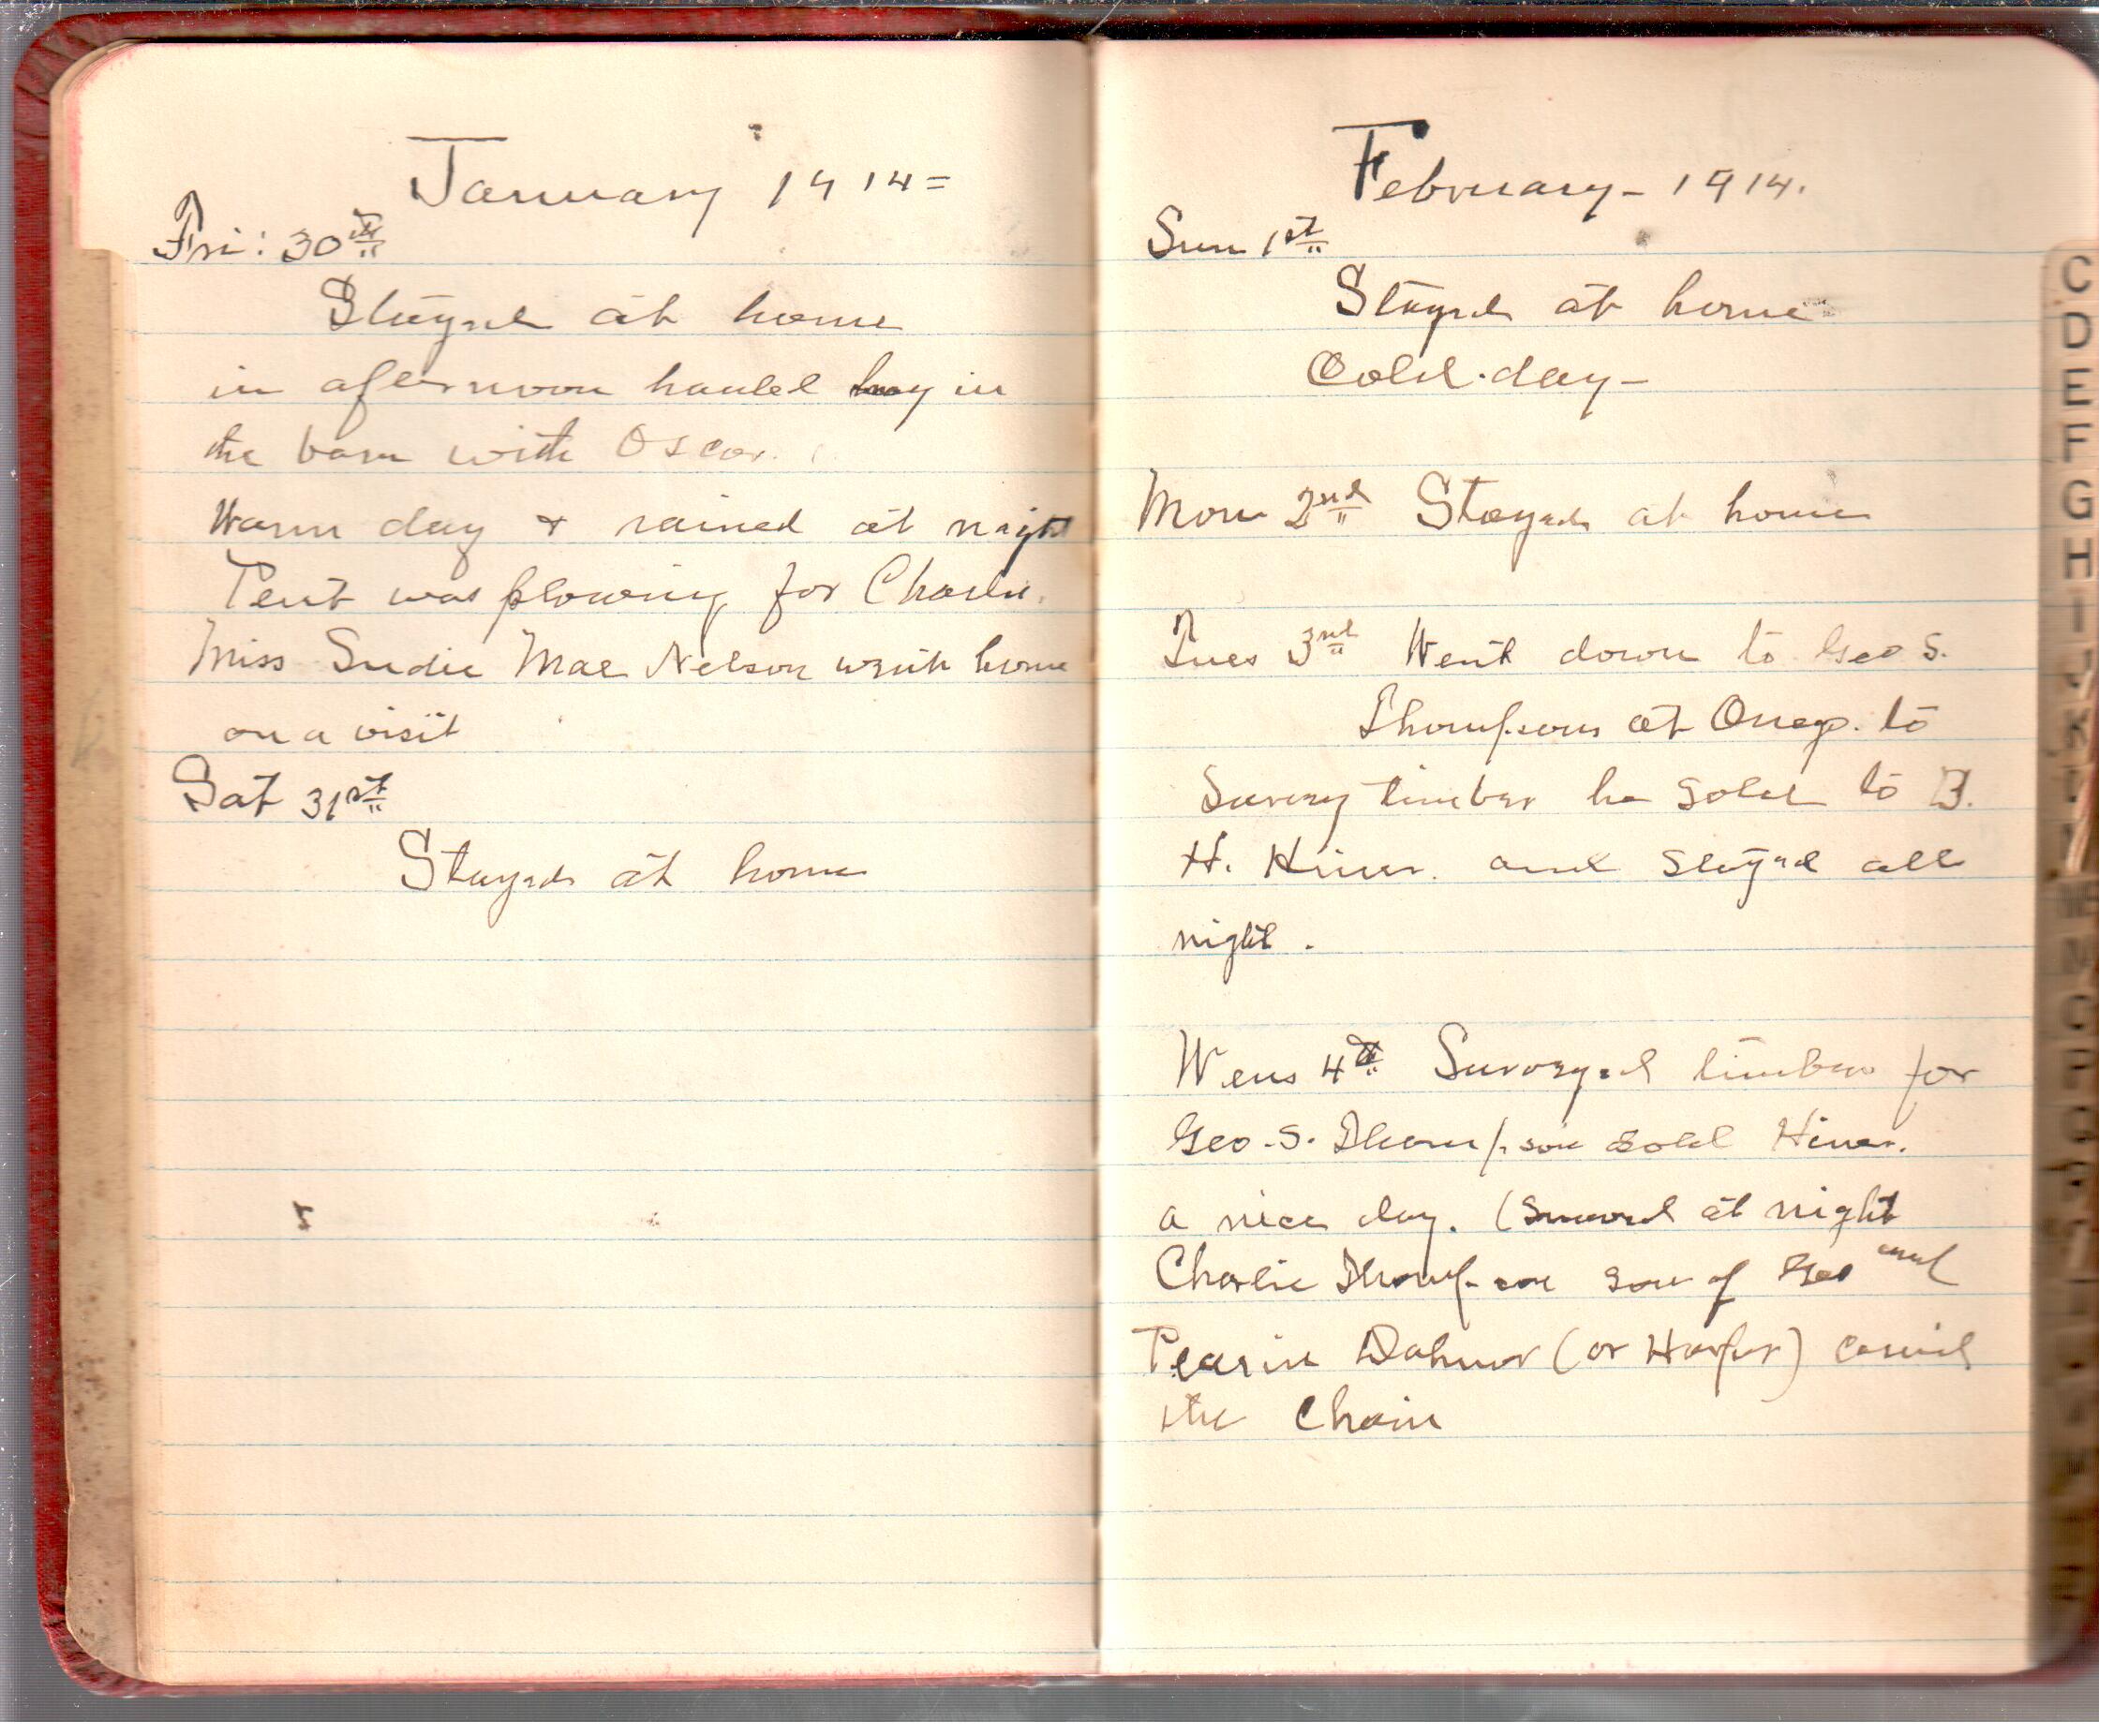 January 1914=
Fri: 30th
Stayed at home
in afternoon hauled hay in
the barn with Oscar.
Warm day & rained at night
Pent was plowing for Charlie.
Miss Sudie Mae Nelson went home
on a visit
Sat 31st
Stayed at home
February - 1914.
Sun 1st
Stayed at home
Cold. day -
Mon 2nd Stayed at home
Tues 3rd Went down to Geo S.
Thompsons at Onego. to
Survey timber he sold to B.
H. Hiner. and stayed all
night.
Wens 4th Surveyed timber for
Geo. S. Thompson sold Hiner.
a nice day. (Snowed at night
Charlie Thompson son of Geo and
Dahmer (or Harper) carried
the Chain
C
D
E
F
G
H
I
J
K